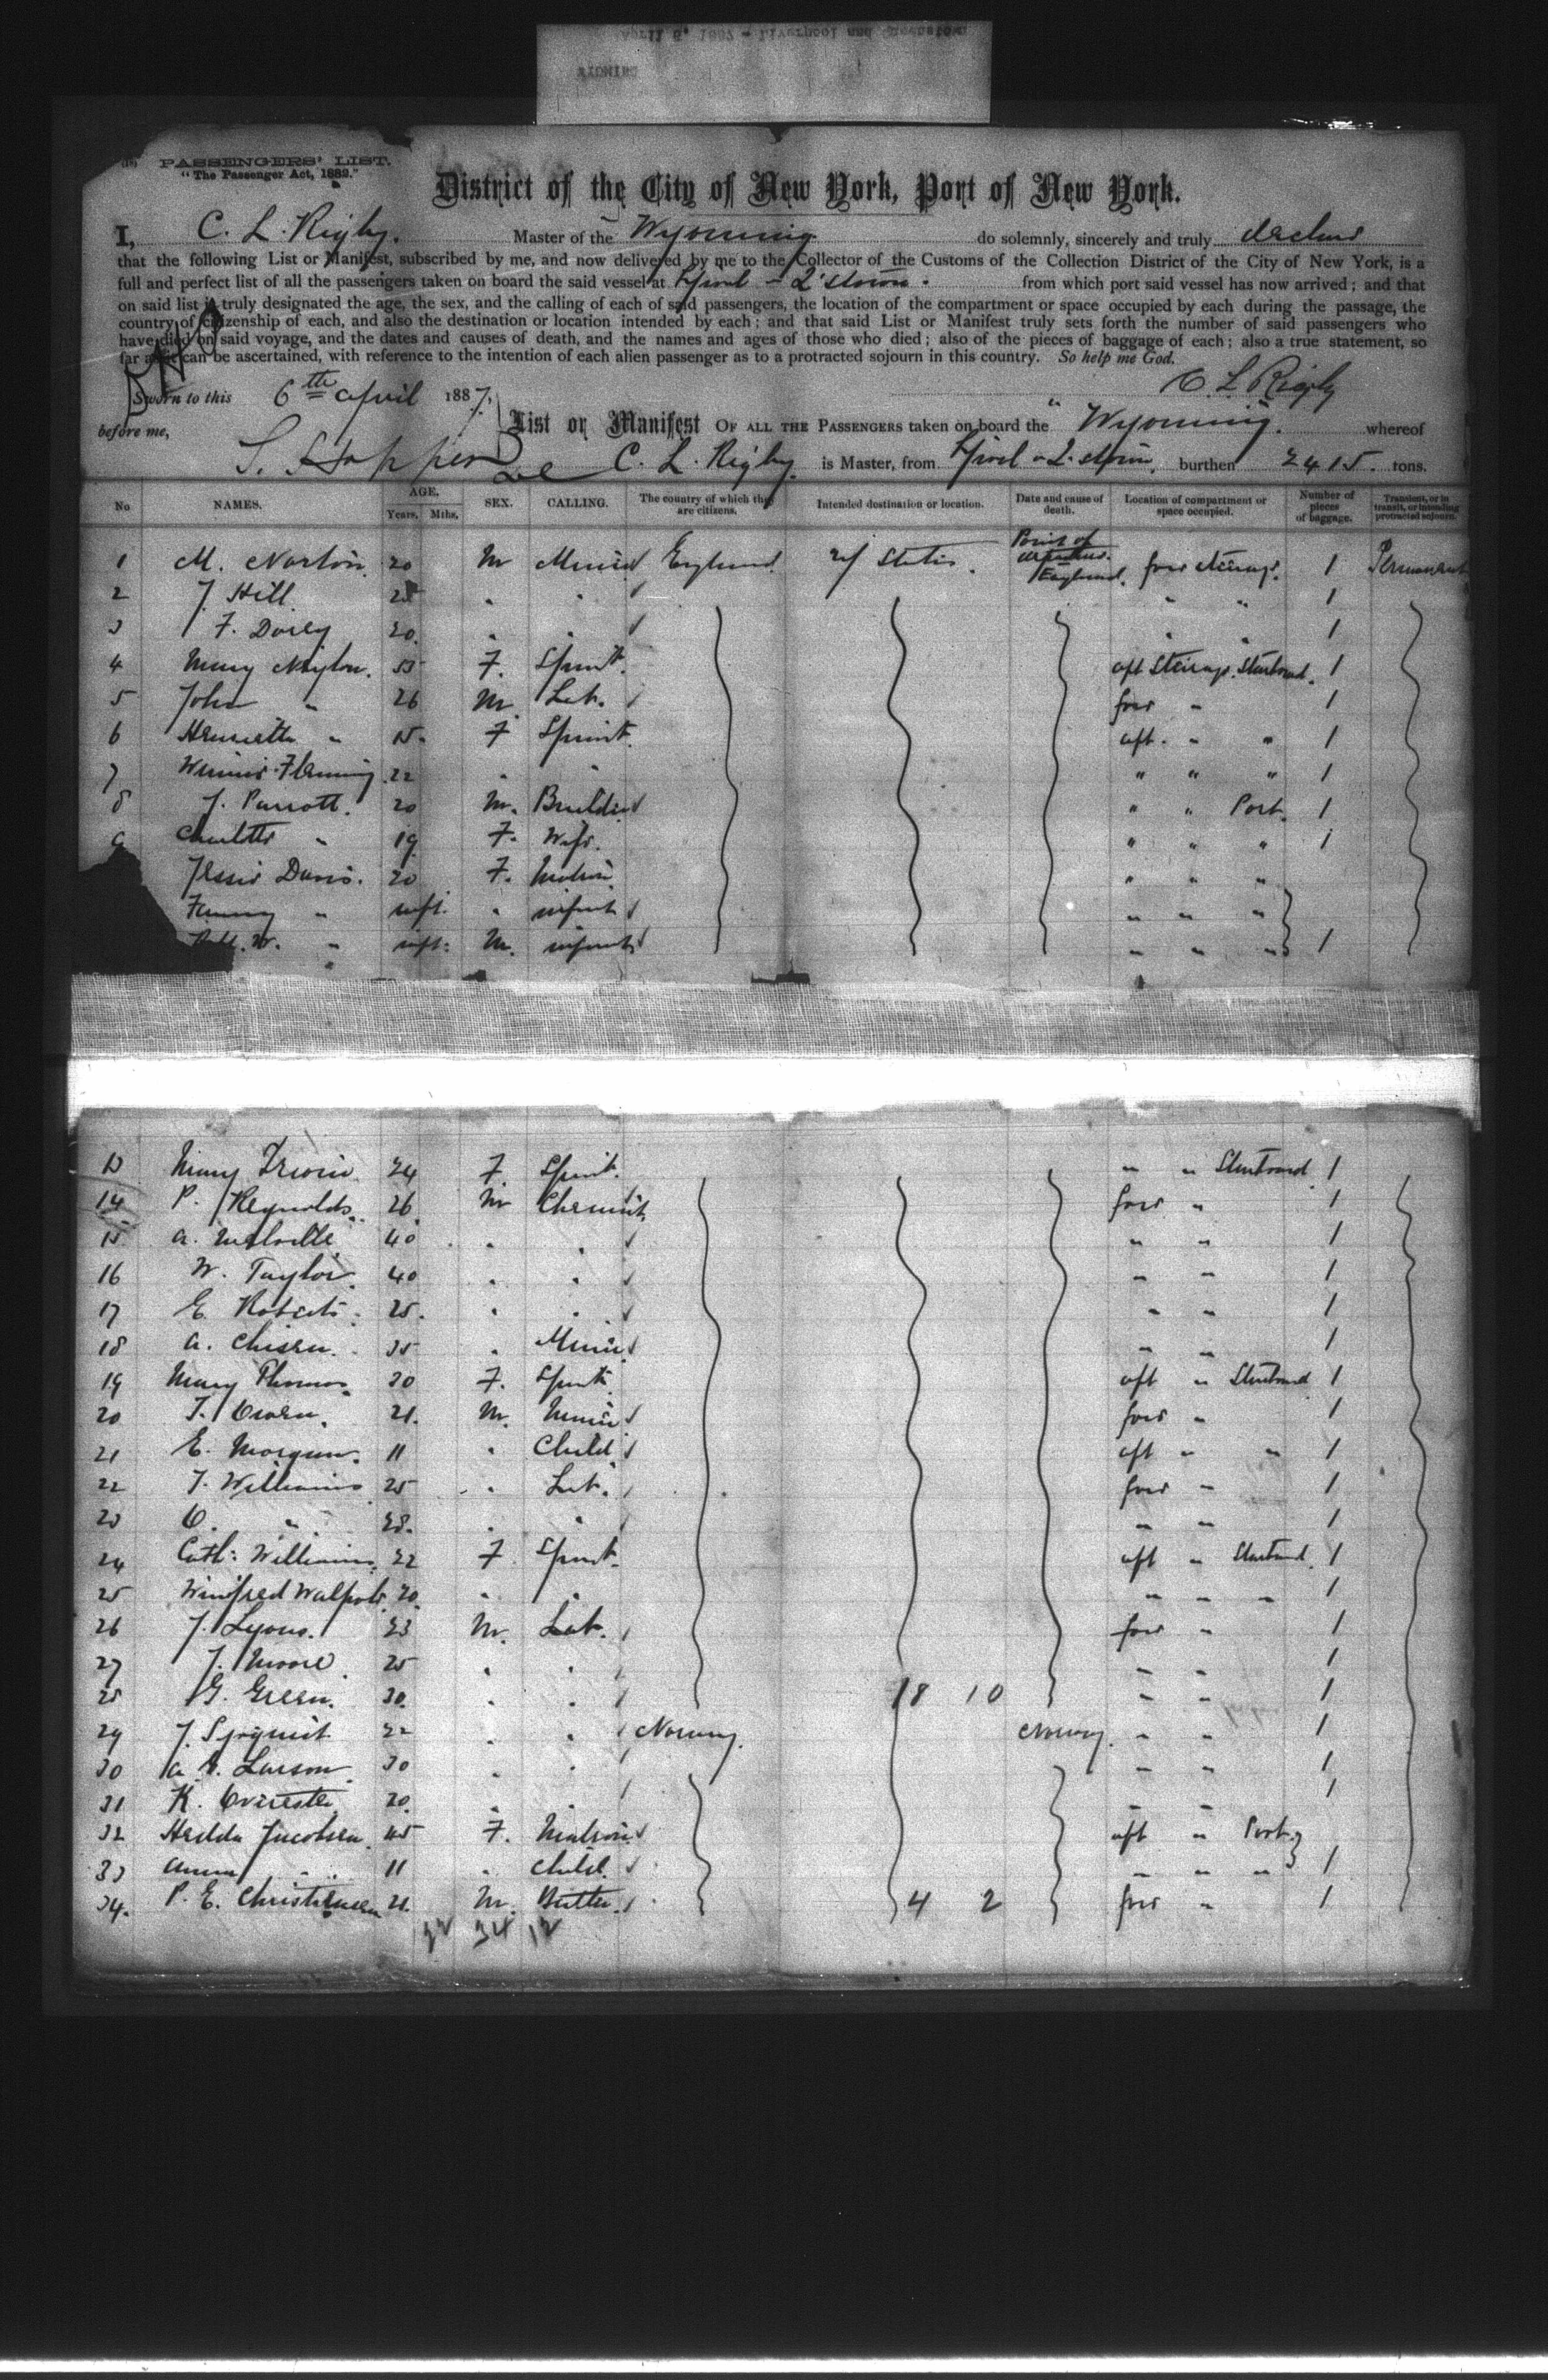 April 6, 1887 - Liverpool and Queenstown
WYOMING
PASSENGERS' LIST.
"The Passenger Act, 1882."
District of the City of New York, Port of New York.
I, C. L. Rigby. Master of the Wyoming do solemnly, sincerely and truly declare
that the following List or Manifest, subscribed by me, and now delivered by me to the Collector of the Customs of the Collection District of the City of New York, is a
full and perfect list of all the passengers taken on board the said vessel at L'pool - Q'stown. from which port said vessel has now arrived; and that
on said list is truly designated the age, the sex, and the calling of each of said passengers, the location of the compartment or space occupied by each during the passage, the
country of citizenship of each, and also the destination or location intended by each; and that said List or Manifest truly sets forth the number of said passengers who
have died on said voyage, and the dates and causes of death, and the names and ages of those who died; also of the pieces of baggage of each; also a true statement, so
far as it can be ascertained, with reference to the intention of each alien passenger as to a protracted sojourn in this country. So help me God.
Sworn to this 6th April 1887, C. L. Rigby
before me, List or Manifest OF ALL THE PASSENGERS taken on board the "Wyoming". whereof
S. Hopper C. L. Rigby. is Master, from L'pool - Q'stown. burthen 2415. tons.
No NAMES. AGE. Years, Mths, SEX. CALLING. The country of which they are citizens. Intended destination or location. Date and cause of death. Location of compartment or space occupied. Number of pieces of baggage. Transient, or in transit, or intending protracted sojourn.
1 M. Norton. 20 M Miner England U States. Point of England. forwd Steerage. 1 Permanent
2 J. Hill 25 " " " " 1
3 F. 20. " " " " 1
4 Mary Naylor. 55 F. Spinst. aft Steerage. Starboard. 1
5 John " 26 M. Lab. forwd " 1
6 Henrietta " 15. F Spinst. aft. " " 1
7 Fleming. 22 " " " " " 1
8 J. Parrott. 20 M. Builder " " Port. 1
9 Charlotte " 19 F. Wife. " " " 1
Jessie Davis. 20 F. Matron " " "
Fanny " inft. " infant " " "
W. " inft. M. infant " " " 1
13 Mary Irwin 24 F Spinst. " " Starboard. 1
14 P. Reynolds. 26 M Chemist forwd " 1
15 A. Melville 40 " " " " 1
16 W. Taylor. 40 " " " " 1
17 E. Roberts. 25. " " " " 1
18 A. 35 " Miner " " 1
19 Mary Thomas. 20 F. Spinst. aft " Starboard 1
20 T. Owen. 21. M. Miner forwd " 1
21 E. Morgan. 11 " Child aft " " 1
22 T. Williams 25 " Lab. forwd " 1
23 O. " 28. " " " " 1
24 Cath: Williams. 22 F Spinst. aft " Starboard. 1
25 Winifred Walpole. 20. " " " " " 1
26 J. Lyons. 23 M. Lab. forwd " 1
27 J. Moore. 25 " " " " 1
28 G. Green. 30. " " 18 10 " " 1
29 J. 22 " " Norway. Norway. " " 1
30 A. Larson. 30 " " " " 1
31 K. 20. " " " " 1
32 Hedda Jacobsen 45 F. Matron aft " Port.
33 Anna " 11 " Child. " " " 1
34. P. E. Christensen 21. M. Butler. 4 2 forwd " 1
34 12